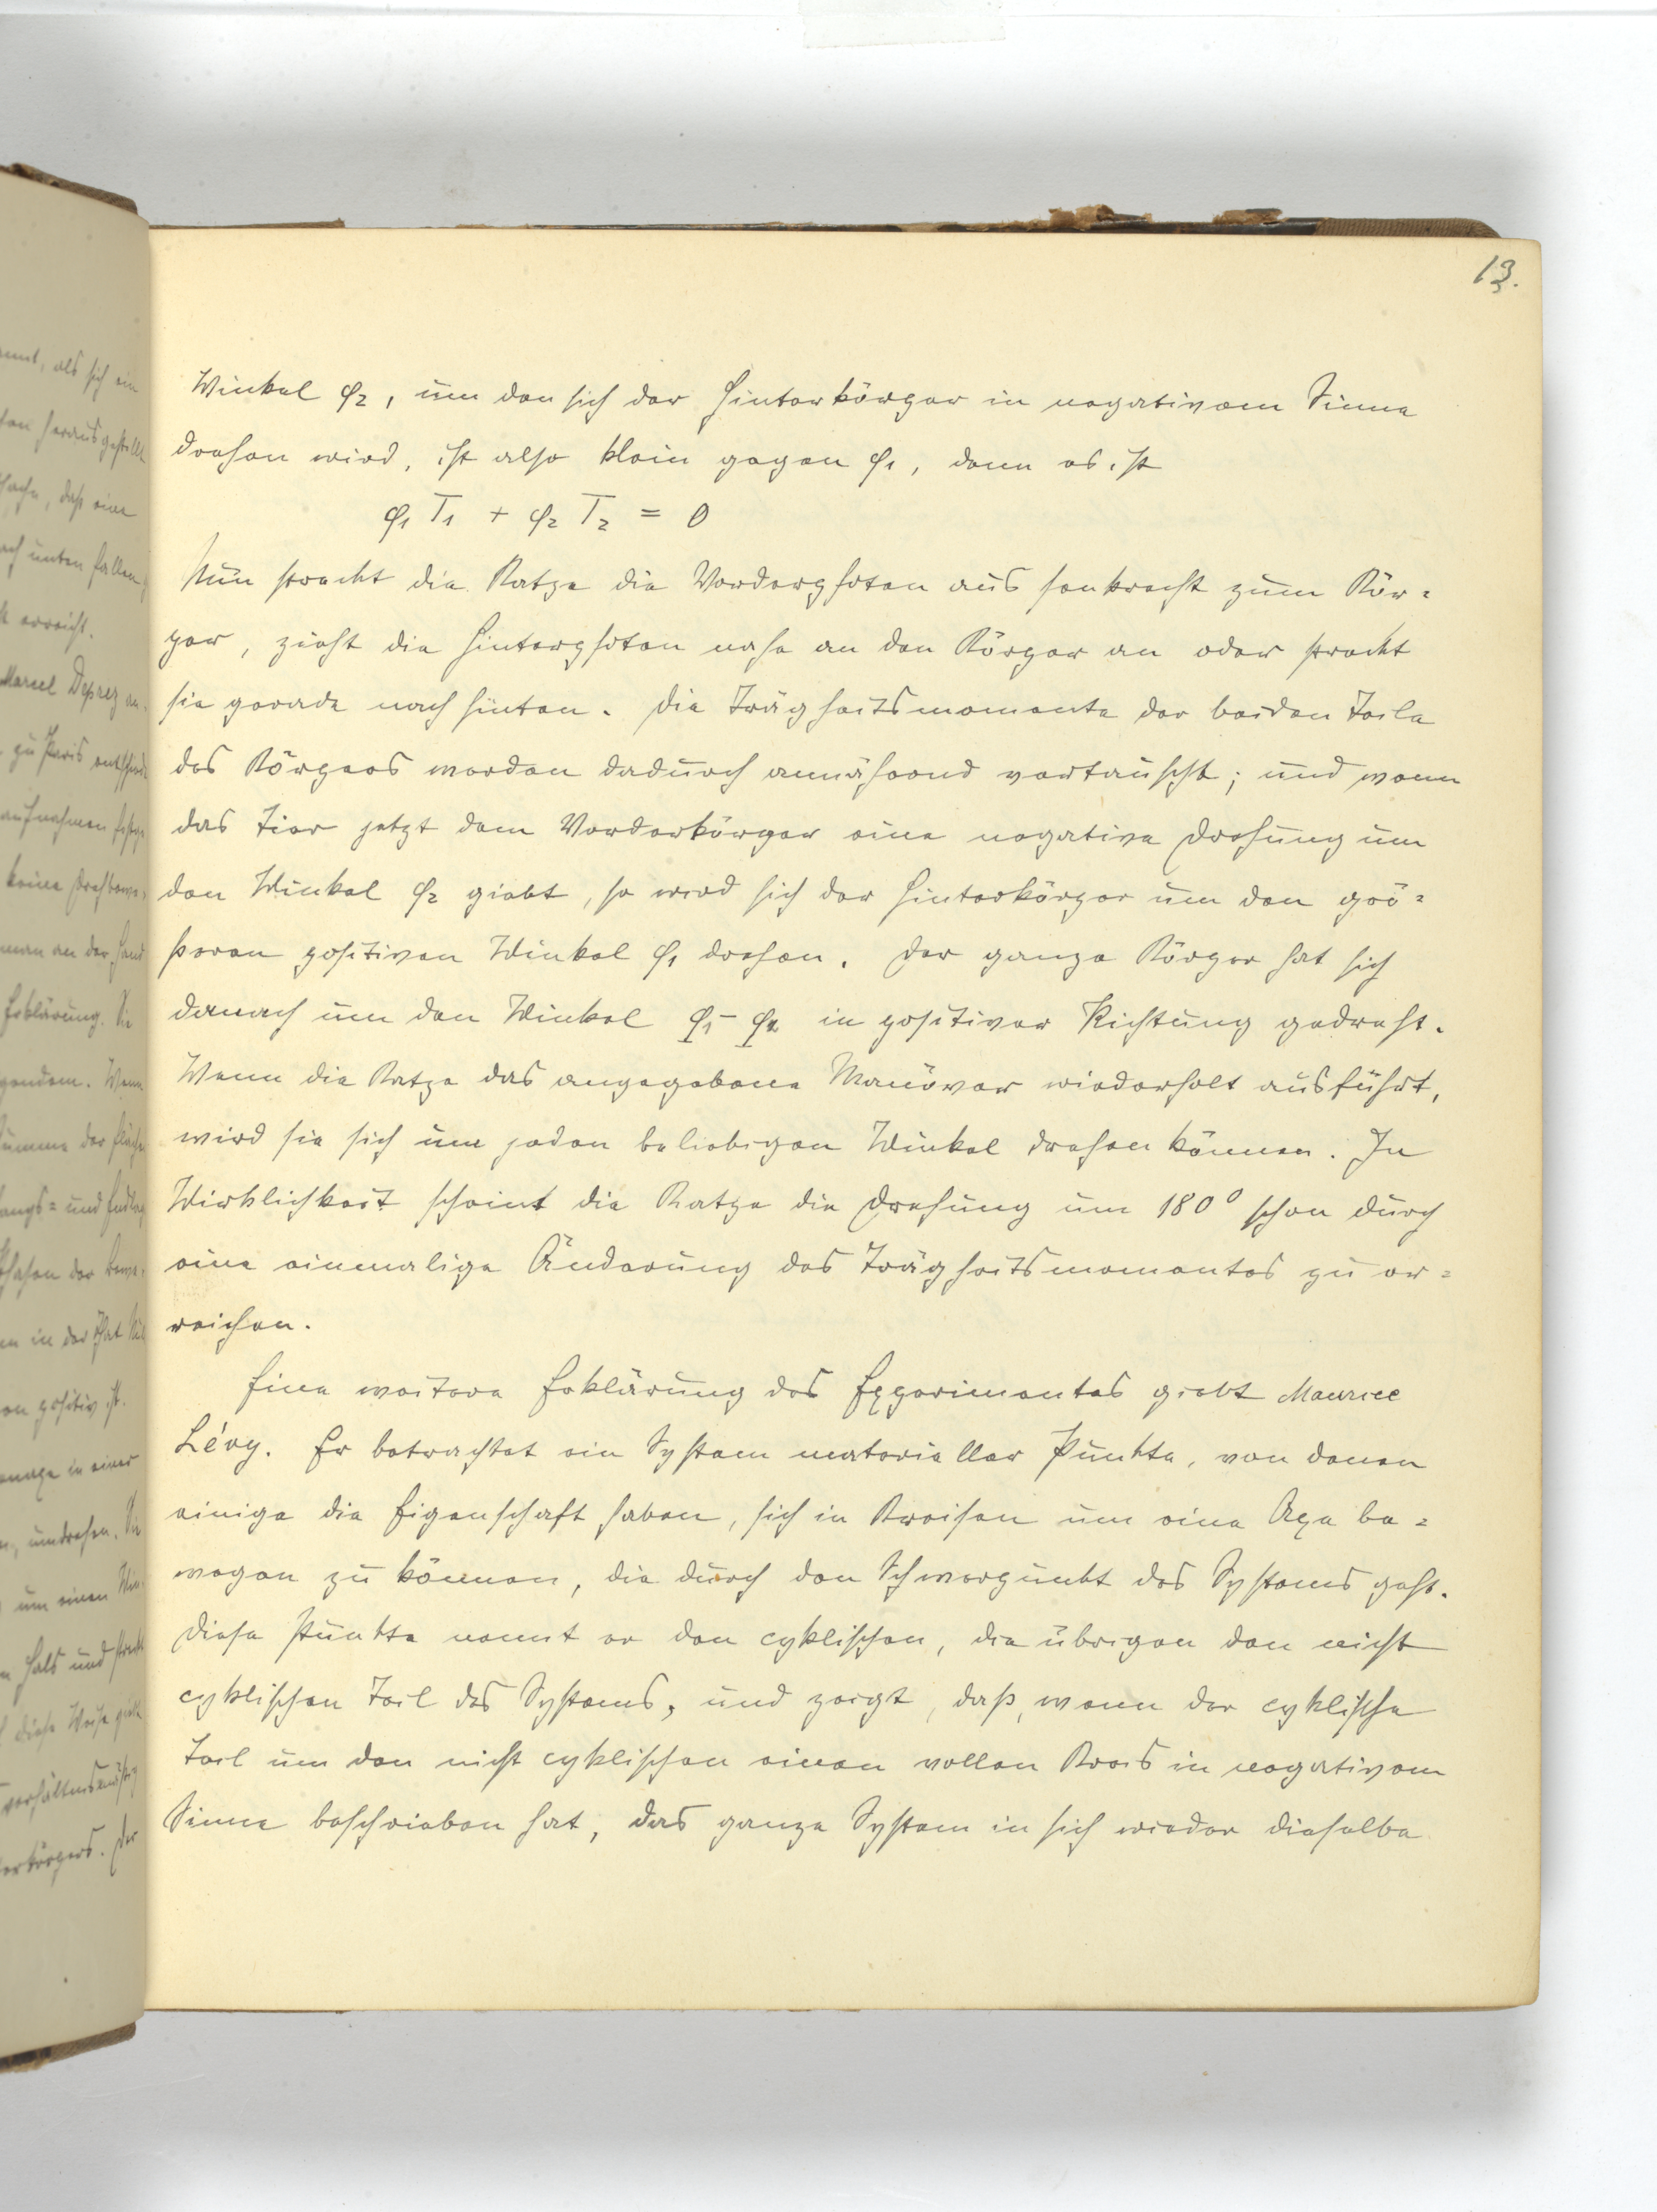 13.
Winkel φ2, um den sich der Hinterkörper in negativem Sinne
drehen wird, ist also klein gegen φ1, denn es ist
φ1 T1 + φ2 T2 = 0
Nun streckt die Katze die Vorderpfoten aus senkrecht zum Kör=
per, zieht die Hinterpfoten nahe an den Körper an oder streckt
sie gerade nach hinten. Die Trägheitsmomente der beiden Teile
des Körpers werden dadurch annähernd vertauscht; und wenn
das Tier jetzt dem Vorderkörper eine negative Drehung um
den Winkel φ2 giebt, so wird sich der Hinterkörper um den grö=
ßeren positiven Winkel φ1 drehen. Der ganze Körper hat sich
danach um den Winkel φ1 - φ2 in positiver Richtung gedreht.
Wenn die Katze das angegebene Manöver wiederholt ausführt,
wird sie sich um jeden beliebigen Winkel drehen können. In
Wirklichkeit scheint die Katze die Drehung um 180° schon durch
eine einmalige Änderung des Trägheitsmomentes zu er=
reichen.
Eine weitere Erklärung des Experimentes giebt Maurice
Lévy. Er betrachtet ein System materieller Punkte, von denen
einige die Eigenschaft haben, sich in Kreisen um eine Axe be=
wegen zu können, die durch den Schwerpunkt des Systems geht.
Diese Punkte nennt er den cyklischen, die übrigen den nicht
cyklischen Teil des Systems, und zeigt, daß, wenn der cyklische
Teil um den nicht cyklischen einen vollen Kreis in negativem
Sinne beschrieben hat, das ganze System in sich wieder dieselbe